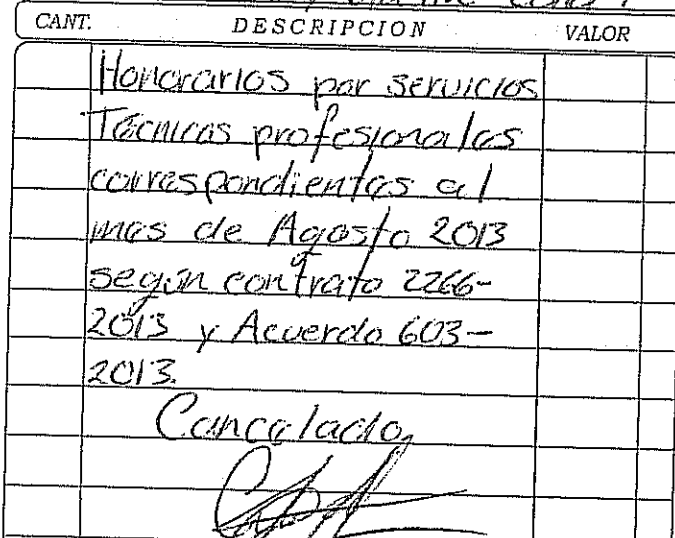 CANT. DESCRIPCION VALOR
Honorarios por servicios
Técnicos profesionales
correspondientes al
mes de Agosto 2013
según contrato 2266-
2013 y Acuerdo 603-
2013.
Cancelado,